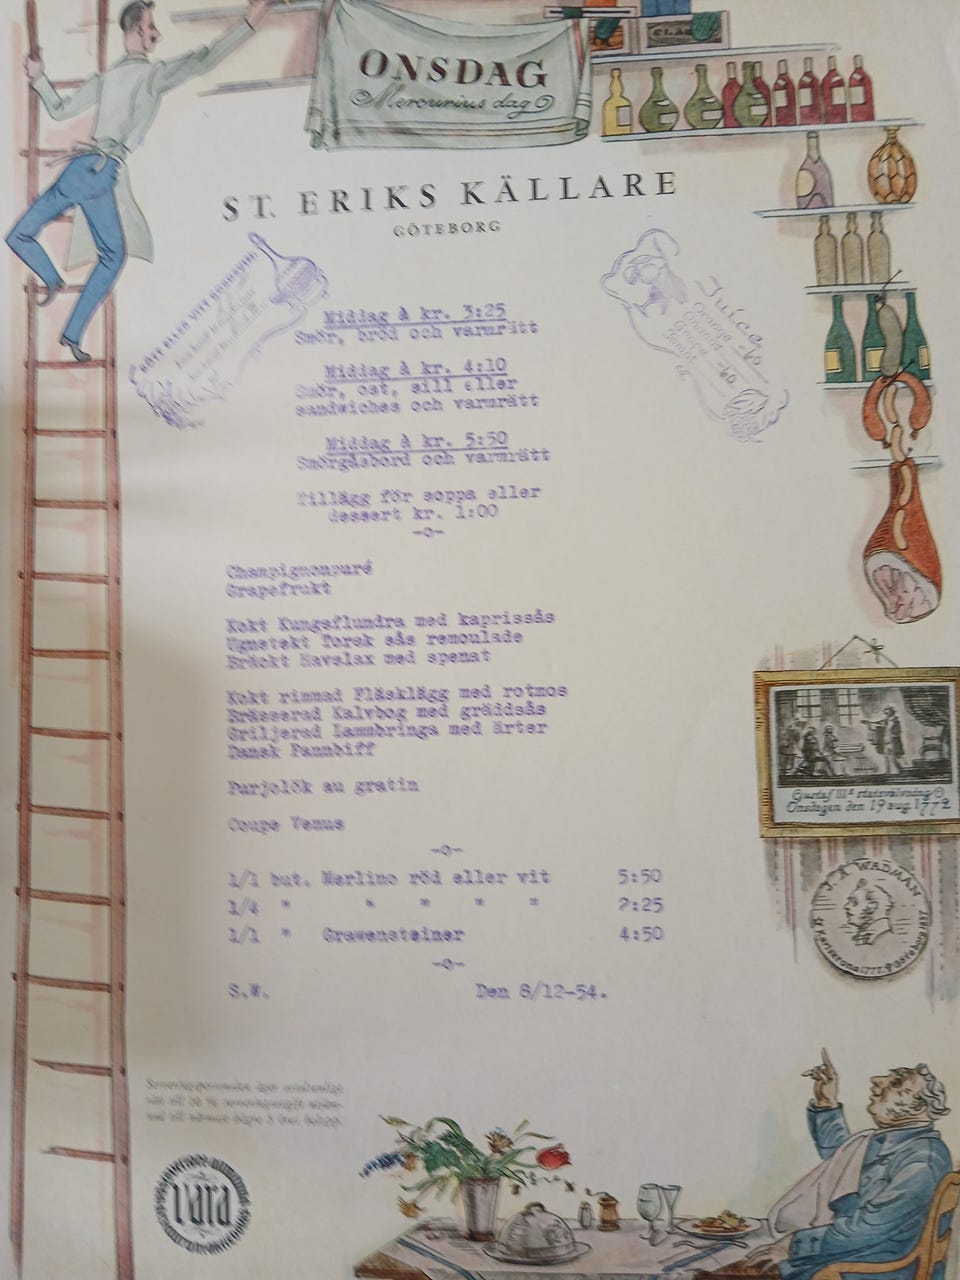 ONSDAG
Mercurius dag
ST. ERIKS KÄLLARE
GÖTEBORG
RÖTT ELLER VITT BORDSVIN
Juice
Orange -60
Grape -60
Tomat
Middag à kr. 3:25
Smör, bröd och varmrätt
Middag à kr. 4:10
Smör, ost, sill eller
sandwiches och varmrätt
Middag à kr. 5:50
Smörgåsbord och varmrätt
Tillägg för soppa eller
dessert kr. 1:00
-o-
Champignonpuré
Grapefrukt
Kokt Kungsflundra med kaprissås
Ugnstekt Torsk sås remoulade
Bräckt Havslax med spenat
Kokt rimmad Fläsklägg med rotmos
Brässerad Kalvbog med gräddsås
Griljerad Lammbringa med ärter
Dansk Pannbiff
Purjolök au gratin
Coupe Venus
-o-
1/1 but. Merlino röd eller vit 5:50
1/4 " " " " " 2:25
1/1 " Grawensteiner 4:50
-o-
S.W. Den 8/12-54.
Gustaf III:s statsvälvning
Onsdagen den 19 aug. 1772
J. A. WADMAN
Karlskrona 1777 Göteborg 1837
Serveringspersonalen äger ovillkorligt
rätt till
vara